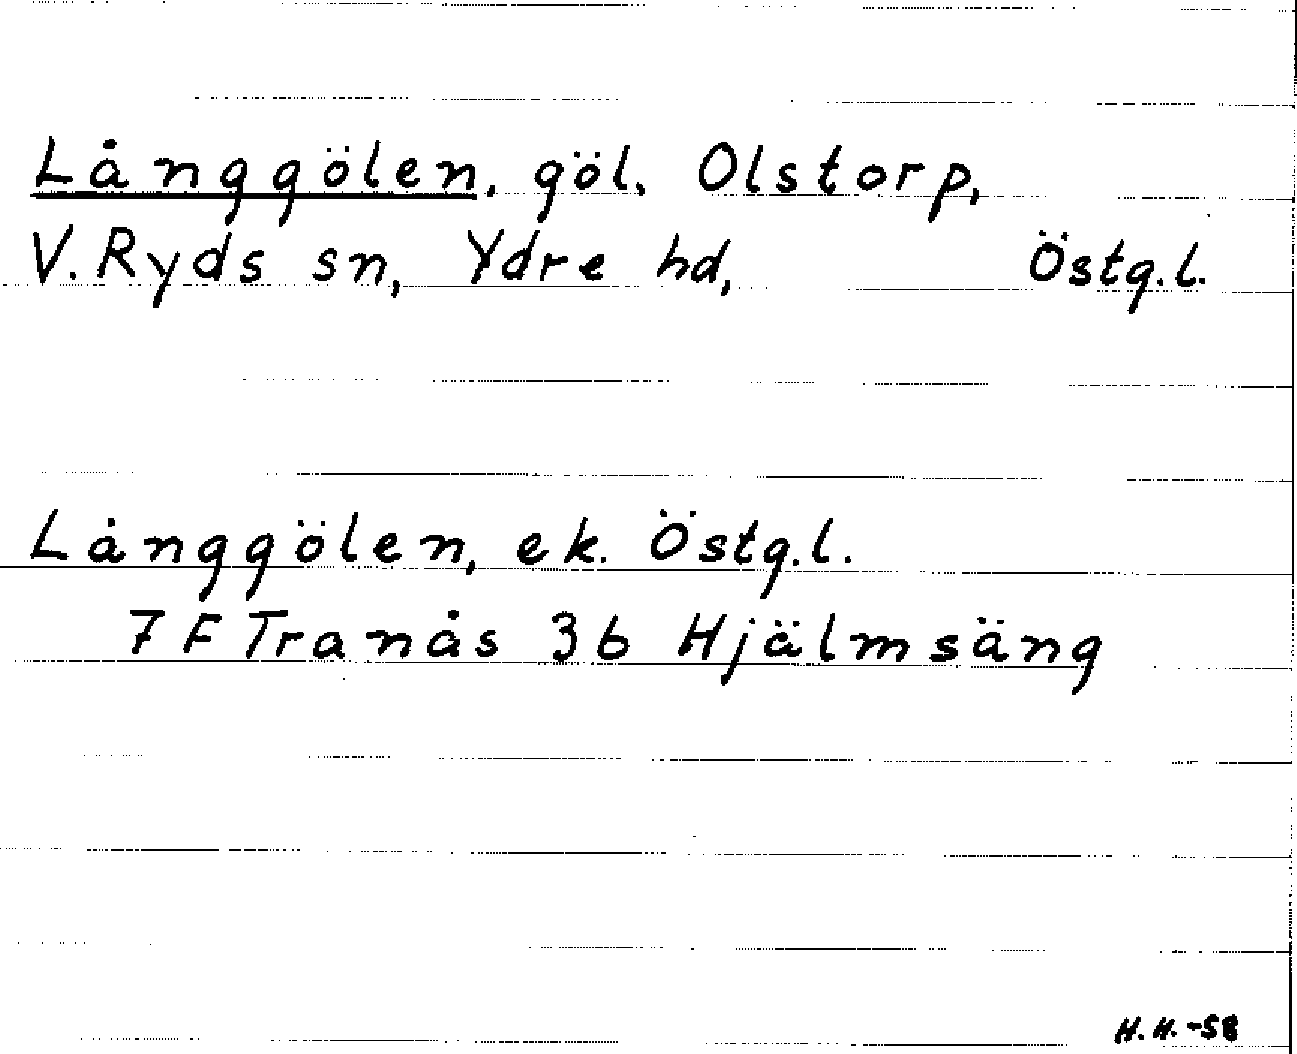 Långgölen, göl, Olstorp,
V. Ryds sn, Ydre hd, Östg.l.
Långgölen, ek. Östg.l.
7 F Tranås 3b Hjälmsäng
H.H.-58